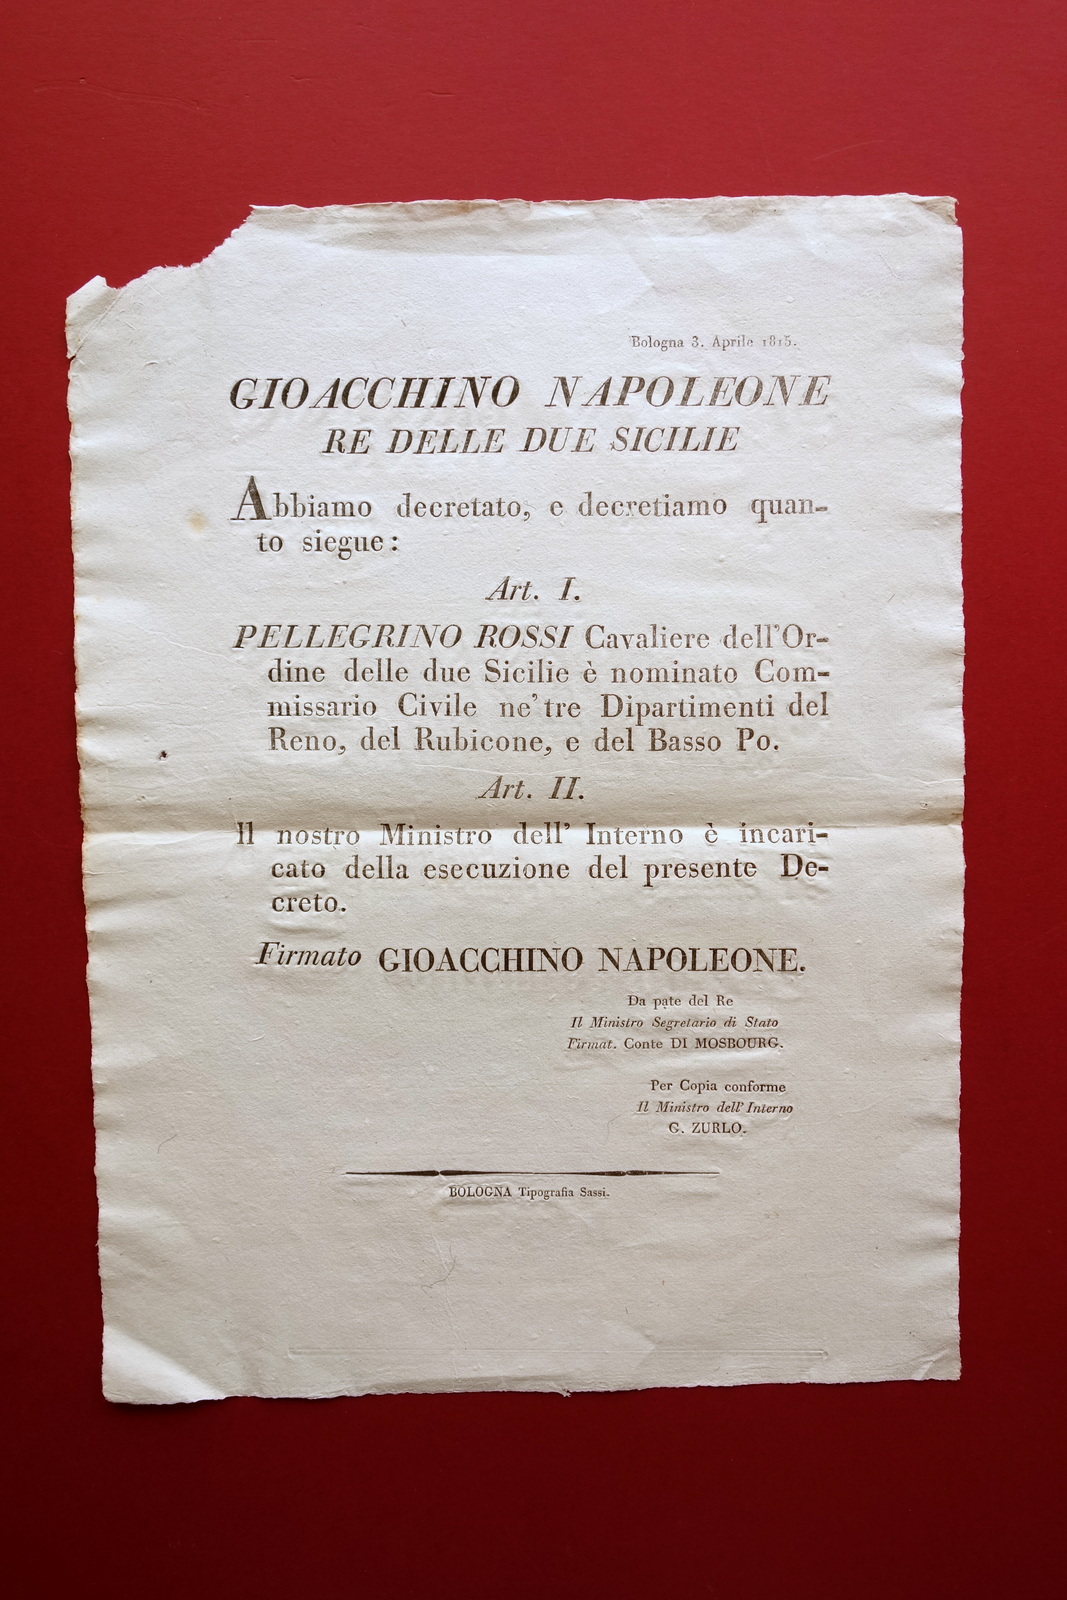 Bologna 3. Aprile 1815.
GIOACCHINO NAPOLEONE
RE DELLE DUE SICILIE
Abbiamo decretato, e decretiamo quan-
to siegue:
Art. I.
PELLEGRINO ROSSI Cavaliere dell'Or-
dine delle due Sicilie è nominato Com-
missario Civile ne' tre Dipartimenti del
Reno, del Rubicone, e del Basso Po.
Art. II.
Il nostro Ministro dell' Interno è incari-
cato della esecuzione del presente De-
creto.
Firmato GIOACCHINO NAPOLEONE.
Da pate del Re
Il Ministro Segretario di Stato
Firmat. Conte DI MOSBOURG.
Per Copia conforme
Il Ministro dell' Interno
G. ZURLO.
BOLOGNA Tipografia Sassi.